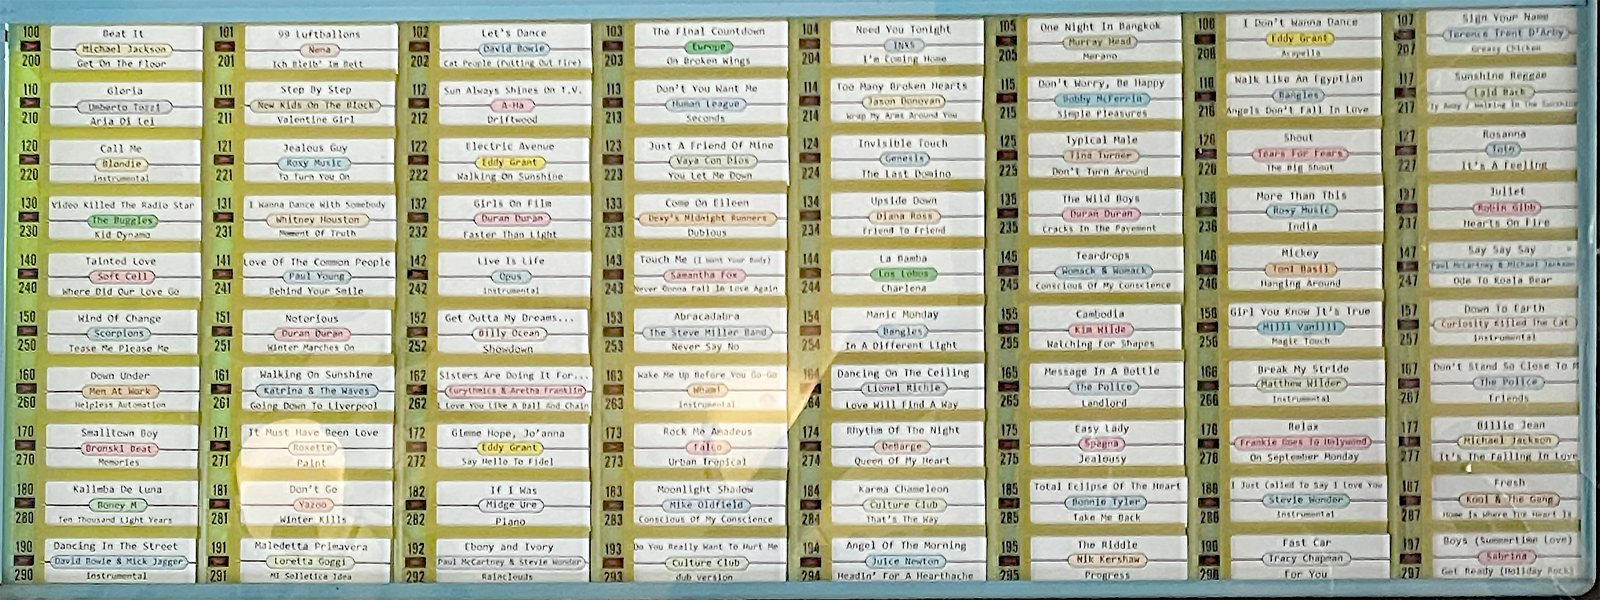 100 Beat It
Michael Jackson
200 Get On The Floor
101 99 Luftballons
Nena
201 Ich Bleib' Im Bett
102 Let's Dance
David Bowie
202 Cat People (Putting Out Fire)
103 The Final Countdown
Europe
203 On Broken Wings
104 Need You Tonight
INXS
204 I'm Coming Home
105 One Night In Bangkok
Murray Head
205 Merano
106 I Don't Wanna Dance
Eddy Grant
206 Acapella
107 Sign Your Name
Terence Trent D'Arby
207 Greasy Chicken
110 Gloria
Umberto Tozzi
210 Aria Di Lei
111 Step By Step
New Kids On The Block
211 Valentine Girl
112 Sun Always Shines On T.V.
A-Ha
212 Driftwood
113 Don't You Want Me
Human League
213 Seconds
114 Too Many Broken Hearts
Jason Donovan
214 Wrap My Arms Around You
115 Don't Worry, Be Happy
Bobby McFerrin
215 Simple Pleasures
116 Walk Like An Egyptian
Bangles
216 Angels Don't Fall In Love
117 Sunshine Reggae
Laid Back
217 ly Away / Walking In The Sunshine
120 Call Me
Blondie
220 Instrumental
121 Jealous Guy
Roxy Music
221 To Turn You On
122 Electric Avenue
Eddy Grant
222 Walking On Sunshine
123 Just A Friend Of Mine
Vaya Con Dios
223 You Let Me Down
124 Invisible Touch
Genesis
224 The Last Domino
125 Typical Male
Tina Turner
225 Don't Turn Around
126 Shout
Tears For Fears
226 The Big Shout
127 Rosanna
Toto
227 It's A Feeling
130 Video Killed The Radio Star
The Buggles
230 Kid Dynamo
131 I Wanna Dance With Somebody
Whitney Houston
231 Moment Of Truth
132 Girls On Film
Duran Duran
232 Faster Than Light
133 Come On Eileen
Dexy's Midnight Runners
233 Dubious
134 Upside Down
Diana Ross
234 Friend To Friend
135 The Wild Boys
Duran Duran
235 Cracks In The Pavement
136 More Than This
Roxy Music
236 India
137 Juliet
Robin Gibb
237 Hearts On Fire
140 Tainted Love
Soft Cell
240 Where Did Our Love Go
141 Love Of The Common People
Paul Young
241 Behind Your Smile
142 Live Is Life
Opus
242 Instrumental
143 Touch Me (I Want Your Body)
Samantha Fox
243 Never Gonna Fall In Love Again
144 La Bamba
Los Lobos
244 Charlena
145 Teardrops
Womack & Womack
245 Conscious Of My Conscience
146 Mickey
Toni Basil
246 Hanging Around
147 Say Say Say
Paul McCartney & Michael Jackson
247 Ode To Koala Bear
150 Wind Of Change
Scorpions
250 Tease Me Please Me
151 Notorious
Duran Duran
251 Winter Marches On
152 Get Outta My Dreams...
Billy Ocean
252 Showdown
153 Abracadabra
The Steve Miller Band
253 Never Say No
154 Manic Monday
Bangles
254 In A Different Light
155 Cambodia
Kim Wilde
255 Watching For Shapes
156 Girl You Know It's True
Milli Vanilli
256 Magic Touch
157 Down To Earth
Curiosity Killed The Cat
257 Instrumental
160 Down Under
Men At Work
260 Helpless Automation
161 Walking On Sunshine
Katrina & The Waves
261 Going Down To Liverpool
162 Sisters Are Doing It For...
Eurythmics & Aretha Franklin
262 I Love You Like A Ball And Chain
163 Wake Me Up Before You Go-Go
Wham!
263 Instrumental
164 Dancing On The Ceiling
Lionel Richie
264 Love Will Find A Way
165 Message In A Bottle
The Police
265 Landlord
166 Break My Stride
Matthew Wilder
266 Instrumental
167 Don't Stand So Close To M
The Police
267 Friends
170 Smalltown Boy
Bronski Beat
270 Memories
171 It Must Have Been Love
Roxette
271 Paint
172 Gimme Hope, Jo'anna
Eddy Grant
272 Say Hello To Fidel
173 Rock Me Amadeus
Falco
273 Urban Tropical
174 Rhythm Of The Night
DeBarge
274 Queen Of My Heart
175 Easy Lady
Spagna
275 Jealousy
176 Relax
Frankie Goes To Holywood
276 On September Monday
177 Billie Jean
Michael Jackson
277 It's The Falling In Love
180 Kalimba De Luna
Boney M
280 Ten Thousand Light Years
181 Don't Go
Yazoo
281 Winter Kills
182 If I Was
Midge Ure
282 Piano
183 Moonlight Shadow
Mike Oldfield
283 Conscious Of My Conscience
184 Karma Chameleon
Culture Club
284 That's The Way
185 Total Eclipse Of The Heart
Bonnie Tyler
285 Take Me Back
186 I Just Called To Say I Love You
Stevie Wonder
286 Instrumental
187 Fresh
Kool & The Gang
287 Home Is Where The Heart Is
190 Dancing In The Street
David Bowie & Mick Jagger
290 Instrumental
191 Maledetta Primavera
Loretta Goggi
291 Mi Solletica Idea
192 Ebony and Ivory
Paul McCartney & Stevie Wonder
292 Rainclouds
193 Do You Really Want To Hurt Me
Culture Club
293 dub version
194 Angel Of The Morning
Juice Newton
294 Headin' For A Hearthache
195 The Riddle
Nik Kershaw
295 Progress
196 Fast Car
Tracy Chapman
296 For You
197 Boys (Summertime Love)
Sabrina
297 Get Ready (Holiday Rock)